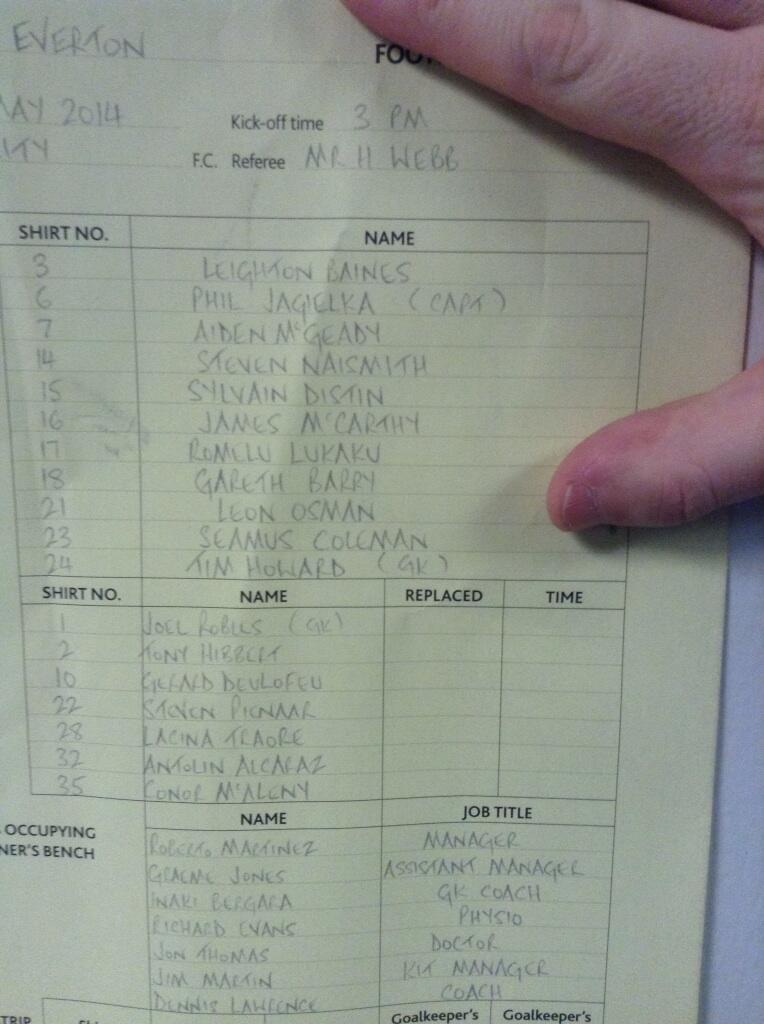 EVERTON
MAY 2014 Kick-off time 3 PM
F.C. Referee MR H WEBB
SHIRT NO. NAME
3 LEIGHTON BAINES
6 PHIL JAGIELKA (CAPT)
7 AIDEN McGEADY
14 STEVEN NAISMITH
15 SYLVAIN DISTIN
16 JAMES McCARTHY
17 ROMELU LUKAKU
18 GARETH BARRY
21 LEON OSMAN
23 SEAMUS COLEMAN
24 TIM HOWARD (GK)
SHIRT NO. NAME REPLACED TIME
1 JOEL ROBLES (GK)
2 TONY HIBBERT
10 GERARD DEULOFEU
22 STEVEN PIENAAR
28 LACINA TRAORE
32 ANTOLIN ALCARAZ
35 CONOR McALENY
OCCUPYING NAME JOB TITLE
NER'S BENCH
ROBERTO MARTINEZ MANAGER
GRAEME JONES ASSISTANT MANAGER
INAKI BERGARA GK COACH
RICHARD EVANS PHYSIO
JON THOMAS DOCTOR
JIM MARTIN KIT MANAGER
DENNIS LAWRENCE COACH
TRIP Goalkeeper's Goalkeeper's